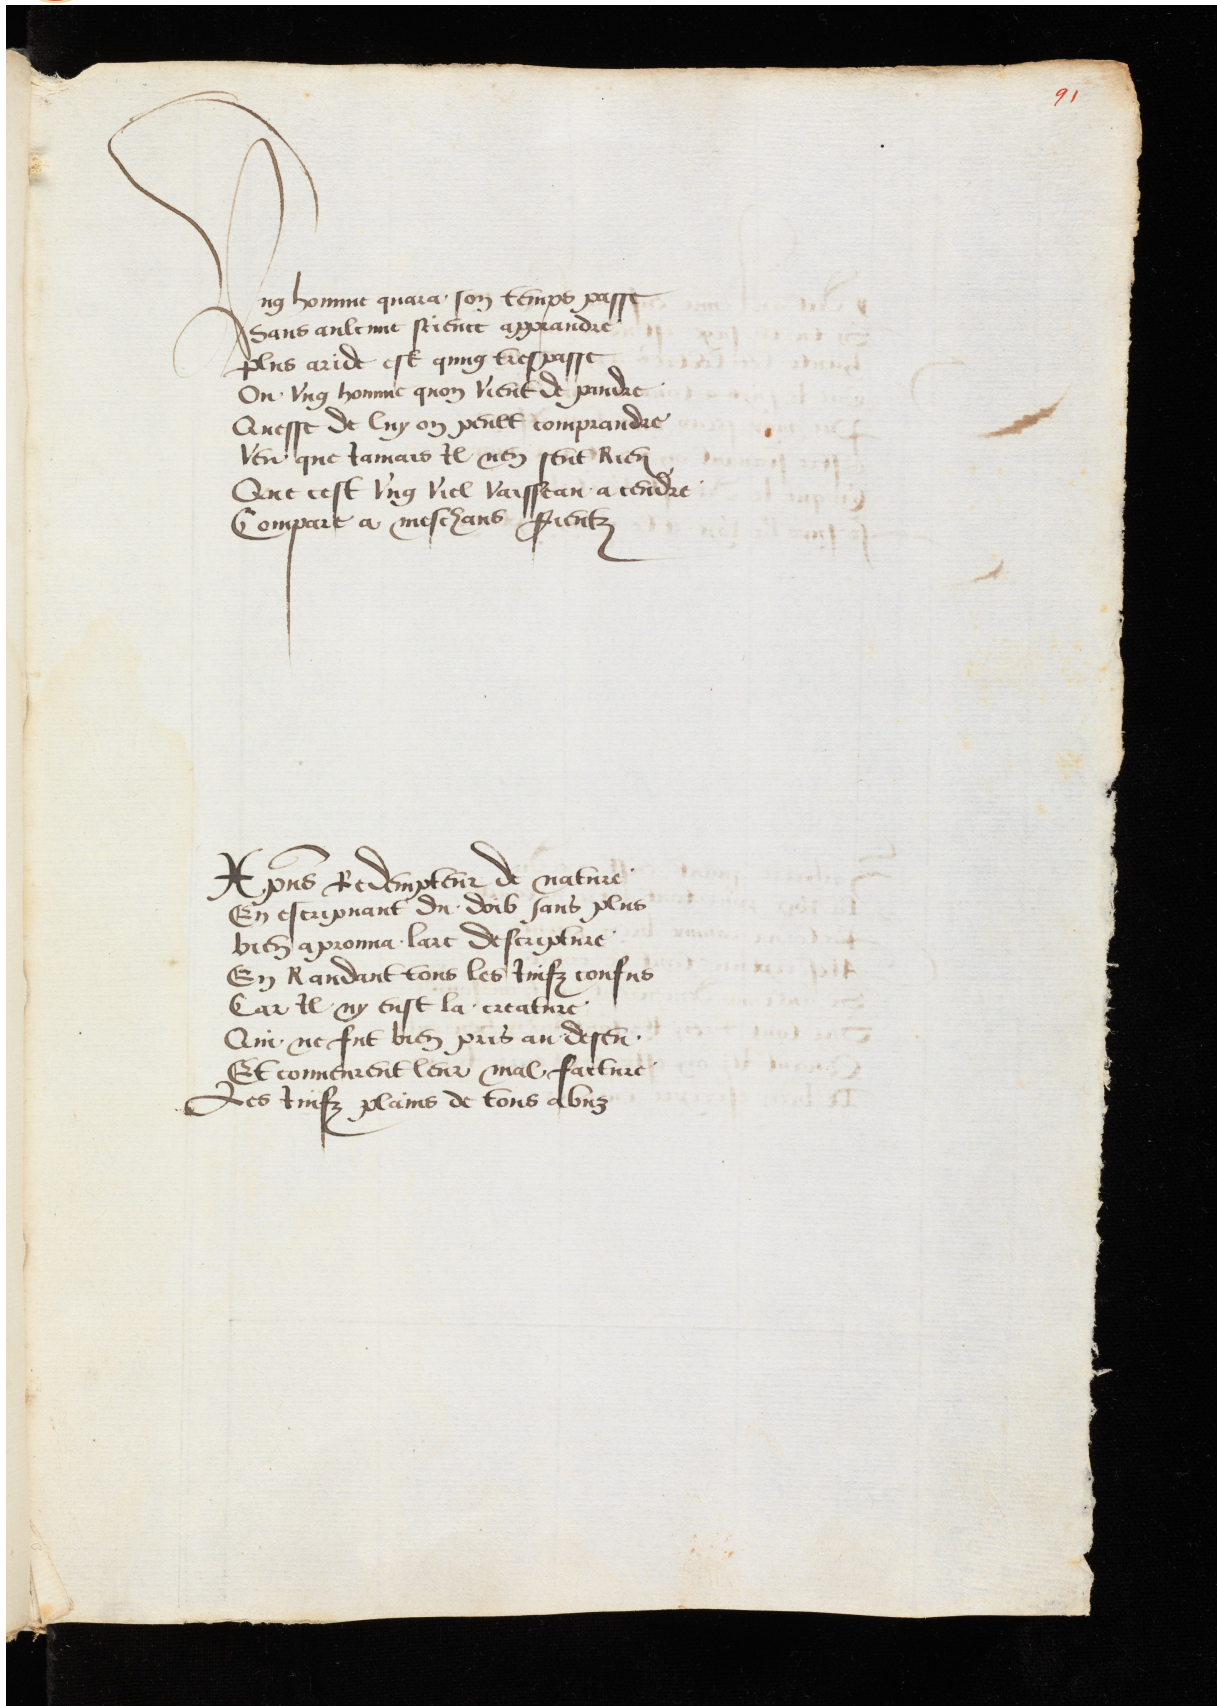 91
Vng homme quara son temps passe
Sans aulcune science apprandre
Plus aride est qung trespasse
Ou vng homme quon vient de pandre
Quesse de luy on peult comprandre
Veu que Jamais Jl nen sent Rien
Que cest vng viel vaisseau a cendre
Compare a meschans fientz
Xpus Redempteur de nature
En escripuant du doib sans plus
bien aprouua lart descripture
En Randant tous les Juifz confus
Car Jl ny eust la creature
Qui ne fut bien pris au deseu
Et couuenrent leur mal facture
Les Juifz plains de tous abuz